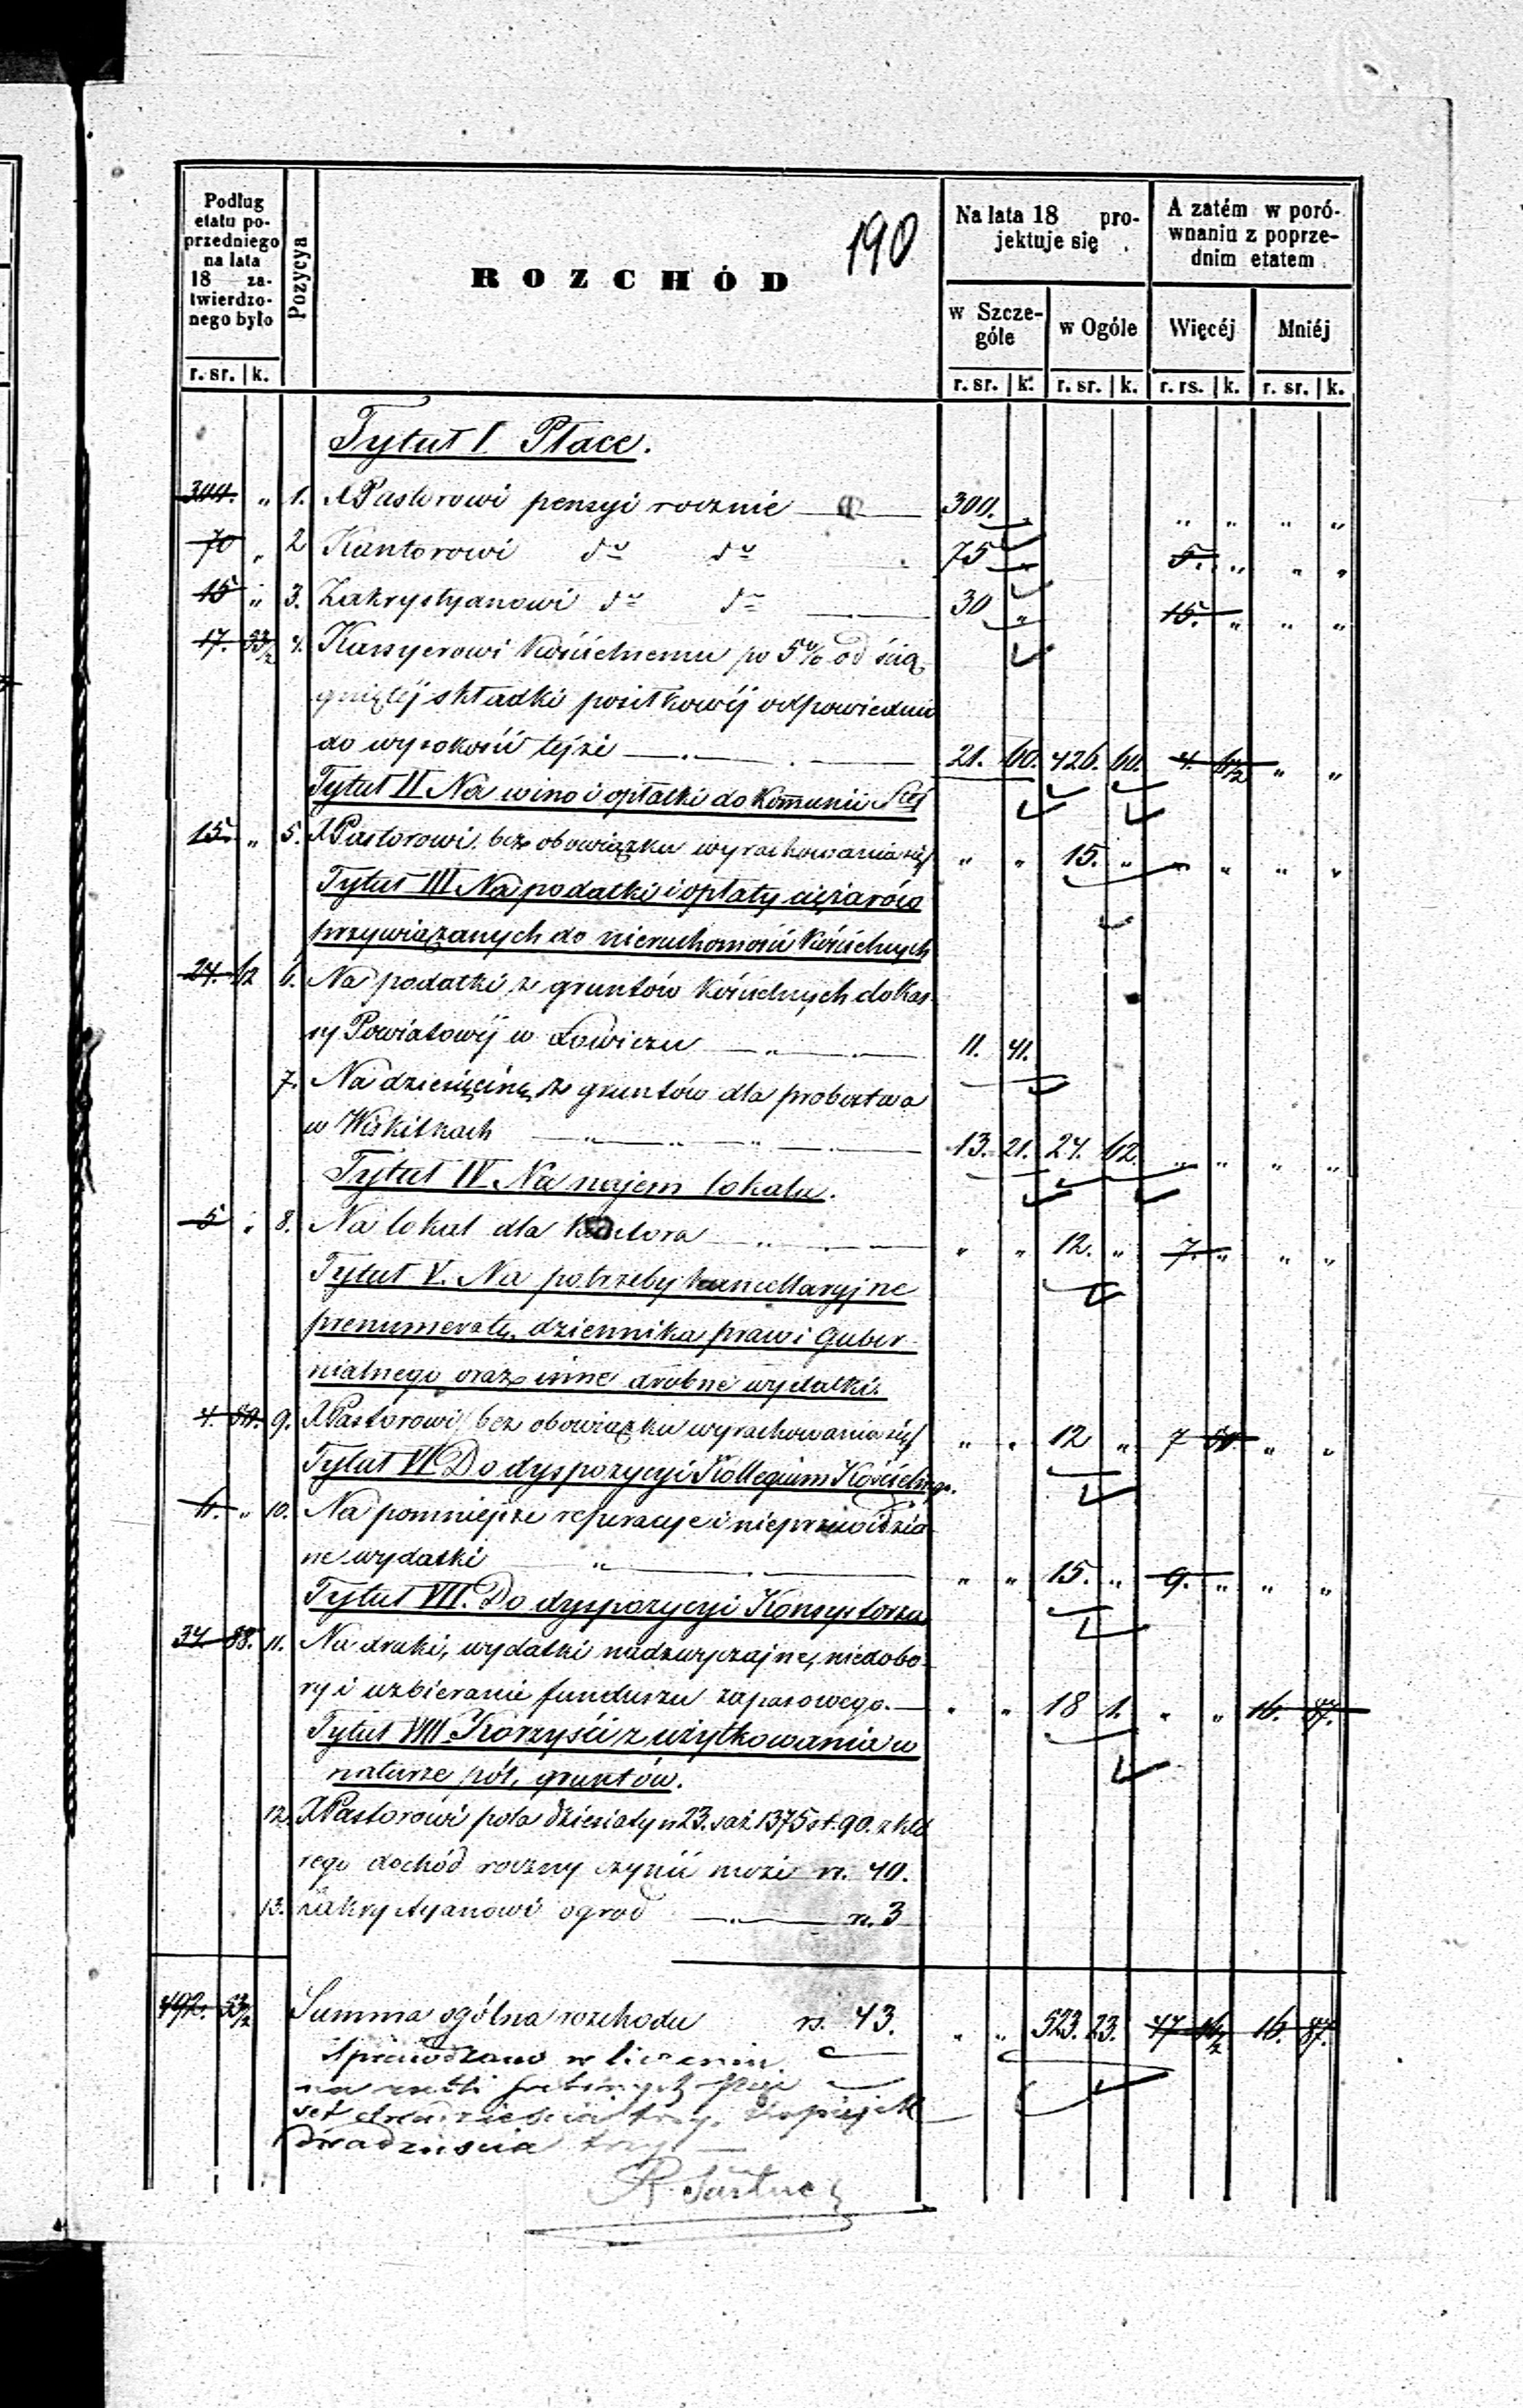 190
Podług etatu poprzedniego na lata 18 zatwierdzonego było
Pozycya
ROZCHÓD
Na lata 18 projektuje się
A zatém w porównaniu z poprzednim etatem
w Szczególe
w Ogóle
Więcéj
Mniéj
r. sr. k.
r. sr. k. r. sr. k. r. rs. k. r. sr. k.
Tytuł I. Płace.
300. „ 1. X Pastorowi pensyi rocznie 300. „ „ „ „ „
70 „ 2 Kantorowi do do 75 „ 5. „ „ „
15 „ 3. Zakrystyanowi do do 30 „ 15. „ „ „
17. 53½ 4. Kassyerowi kościelnemu po 5% od ścią
gniętéj składki posiłkowéj odpowiednio
do wysokości tejże 21. 60. 426. 60. 4. 6½ „ „
Tytuł II Na wino i opłatki do Kommunii Stéj
15. „ 5. X Pastorowi bez obowiązku wyrachowania się „ „ 15. „ „ „ „ „
Tytuł III Na podatki i opłaty ciężarów
przywiązanych do nieruchomości kościelnych
24. 62 6. Na podatki z gruntów kościelnych do Kas
sy Powiatowéj w Łowiczu 11. 41.
7. Na dziesięcinę z gruntów dla probostwa
w Wiskitkach 13. 21. 24. 62. „ „ „ „
Tytuł IV Na najem lokalu.
5 „ 8. Na lokal dla Kantora „ „ 12. „ 7. „ „ „
Tytuł V. Na potrzeby kancellaryjne
prenumeratę dziennika praw i Guber-
nialnego oraz inne drobne wydatki.
4. 50. 9. X Pastorowi bez obowiązku wyrachowania się „ „ 12 „ 7 50. „ „
Tytuł VI. Do dyspozycyi Kollegium Kościelnego.
6. „ 10. Na pomniejsze reperacye i nieprzewidzia
ne wydatki „ „ 15. „ 9. „ „ „
Tytuł VII. Do dyspozycyi Konsystorza
34. 88. 11. Na druki, wydatki nadzwyczajne, niedobo
ry i uzbieranie funduszu zapasowego. „ „ 18 1. „ „ 16. 87.
Tytuł VIII Korzyści z użytkowania w
naturze pól, gruntów.
12. X Pastorowi pola dziesiatyn 23. saż 1375 st. 90. z któ
rego dochód roczny czynić może rs. 40.
13. Zakrystyanowi ogród rs. 3
492. 53½ Summa ogólna rozchodu rs. 43. „ „ 523. 23. 47 16½ 16. 87.
Sprawdzono w liczeniu
na rubli srebrnych pięć
set dwadzieścia trzy. kopiejek
dwadzieścia trzy